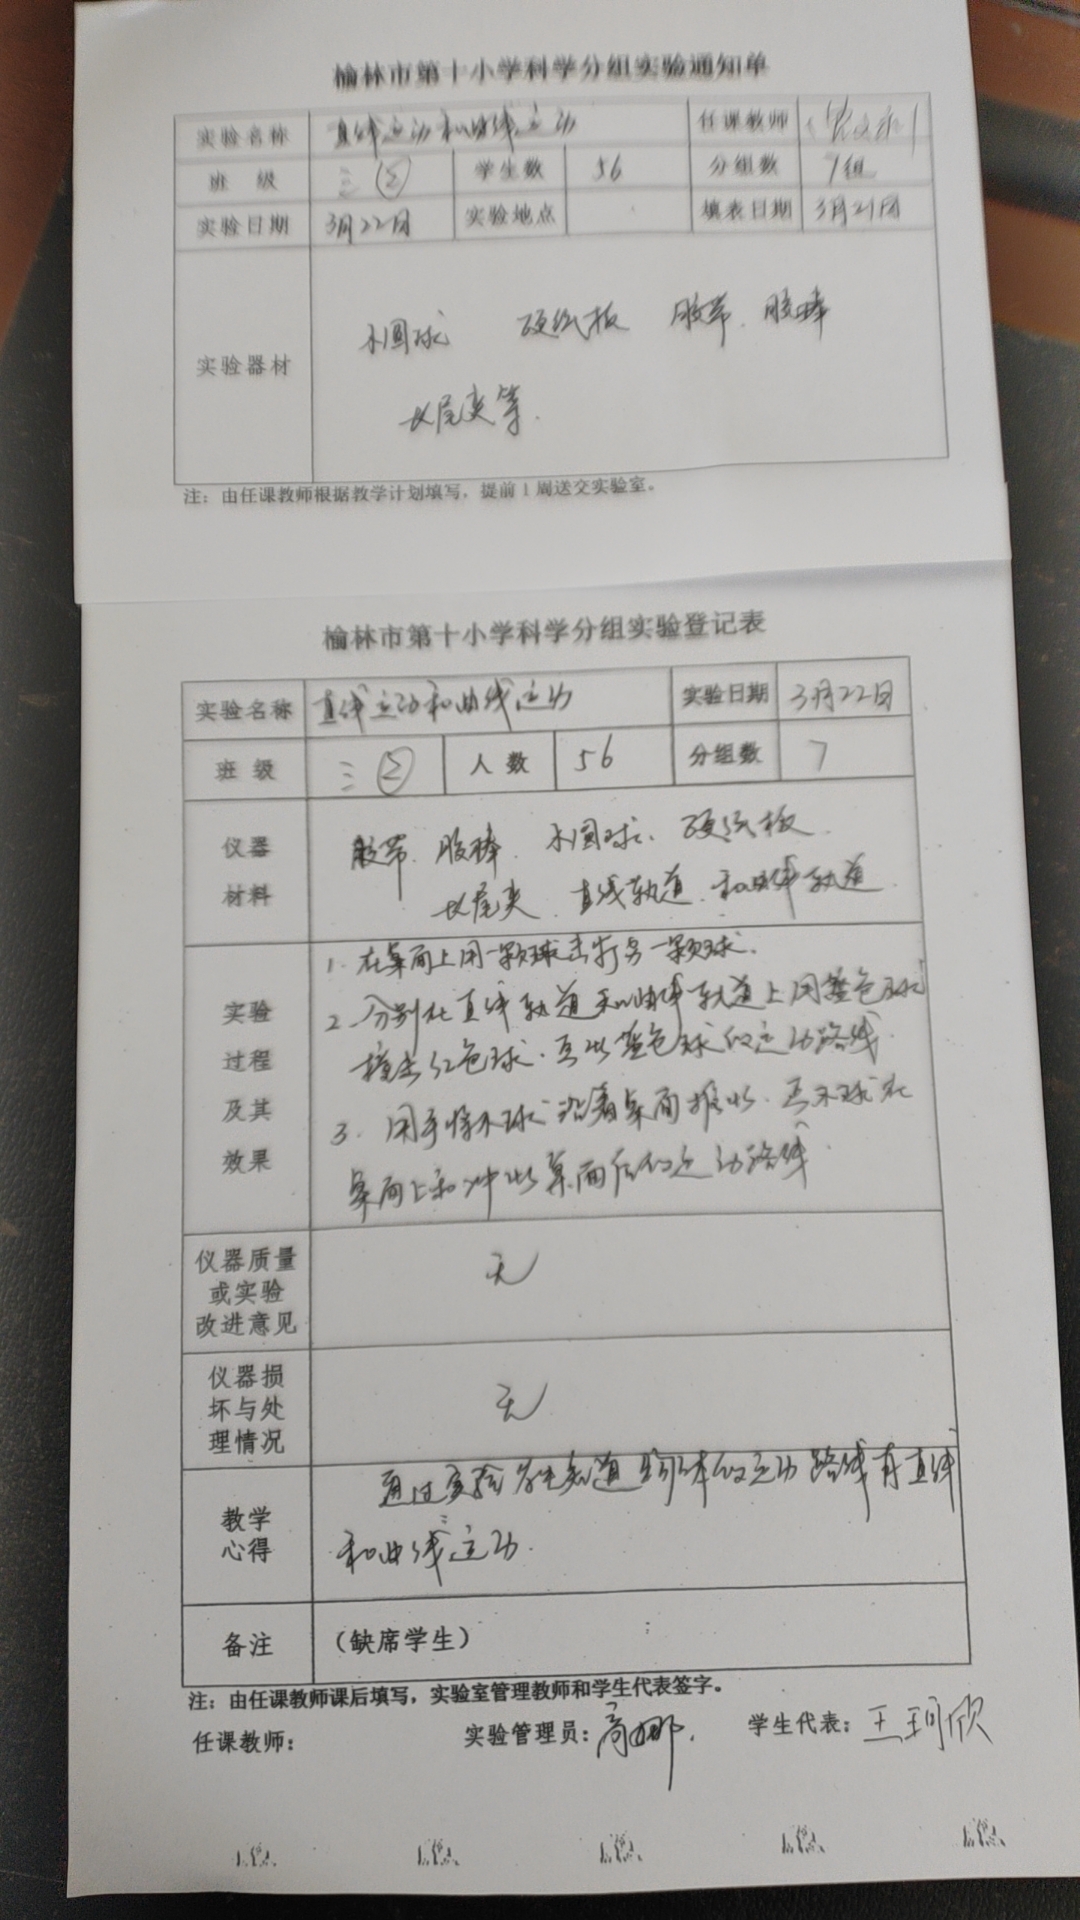 榆林市第十小学科学分组实验通知单
实验名称 直线运动和曲线运动 任课教师
班 级 三② 学生数 56 分组数 7组
实验日期 3月22日 实验地点 填表日期 3月21日
实验器材
木圆球 硬纸板 胶带、胶棒
长尾夹等.
注：由任课教师根据教学计划填写，提前1周送交实验室。
榆林市第十小学科学分组实验登记表
实验名称 直线运动和曲线运动 实验日期 3月22日
班 级 三② 人 数 56 分组数 7
仪器
材料
胶带、胶棒、木圆球、硬纸板、
长尾夹、直线轨道、和曲线轨道
实验
过程
及其
效果
1. 在桌面上用一颗球击打另一颗球.
2. 分别在直线轨道和曲线轨道上用蓝色球
撞击红色球.画出蓝色球的运动路线.
3. 用手将木球沿着桌面推出.画木球在
桌面上和冲出桌面后的运动路线.
仪器质量
或实验
改进意见
无
仪器损
坏与处
理情况
无
教学
心得
通过实验学生知道物体的运动路线有直线
和曲线运动.
备注 （缺席学生）
注：由任课教师课后填写，实验室管理教师和学生代表签字。
任课教师： 实验管理员：高娜. 学生代表：王珂欣